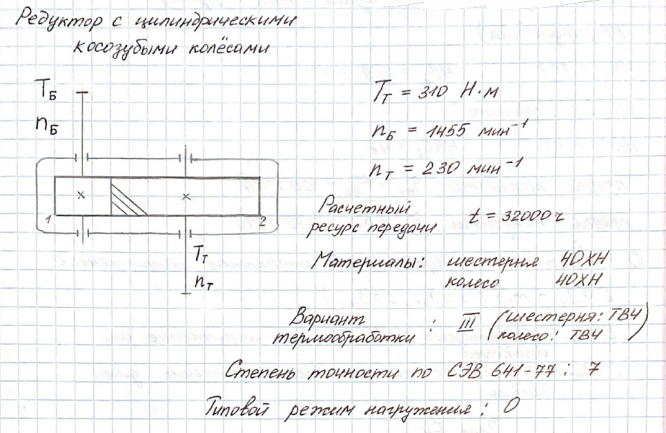 Редуктор с цилиндрическими
косозубыми колёсами
Tб
nб
Tт = 310 Н·м
nб = 1455 мин⁻¹
nт = 230 мин⁻¹
1
2
Tт
nт
Расчетный
ресурс передачи t = 32000 ч
Материалы: шестерня 40ХН
колесо 40ХН
Вариант
термообработки : III (шестерня: ТВЧ
колесо: ТВЧ)
Степень точности по СЭВ 641-77 : 7
Типовой режим нагружения : 0